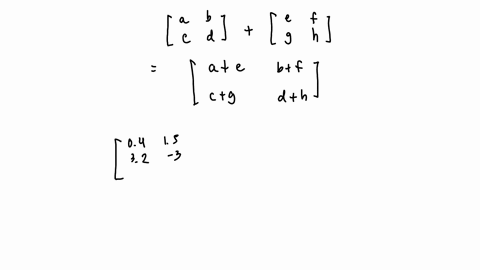 [a b c d] + [e f g h]
= [a+e b+f c+g d+h]
[0.4 1.5
3.2 -3